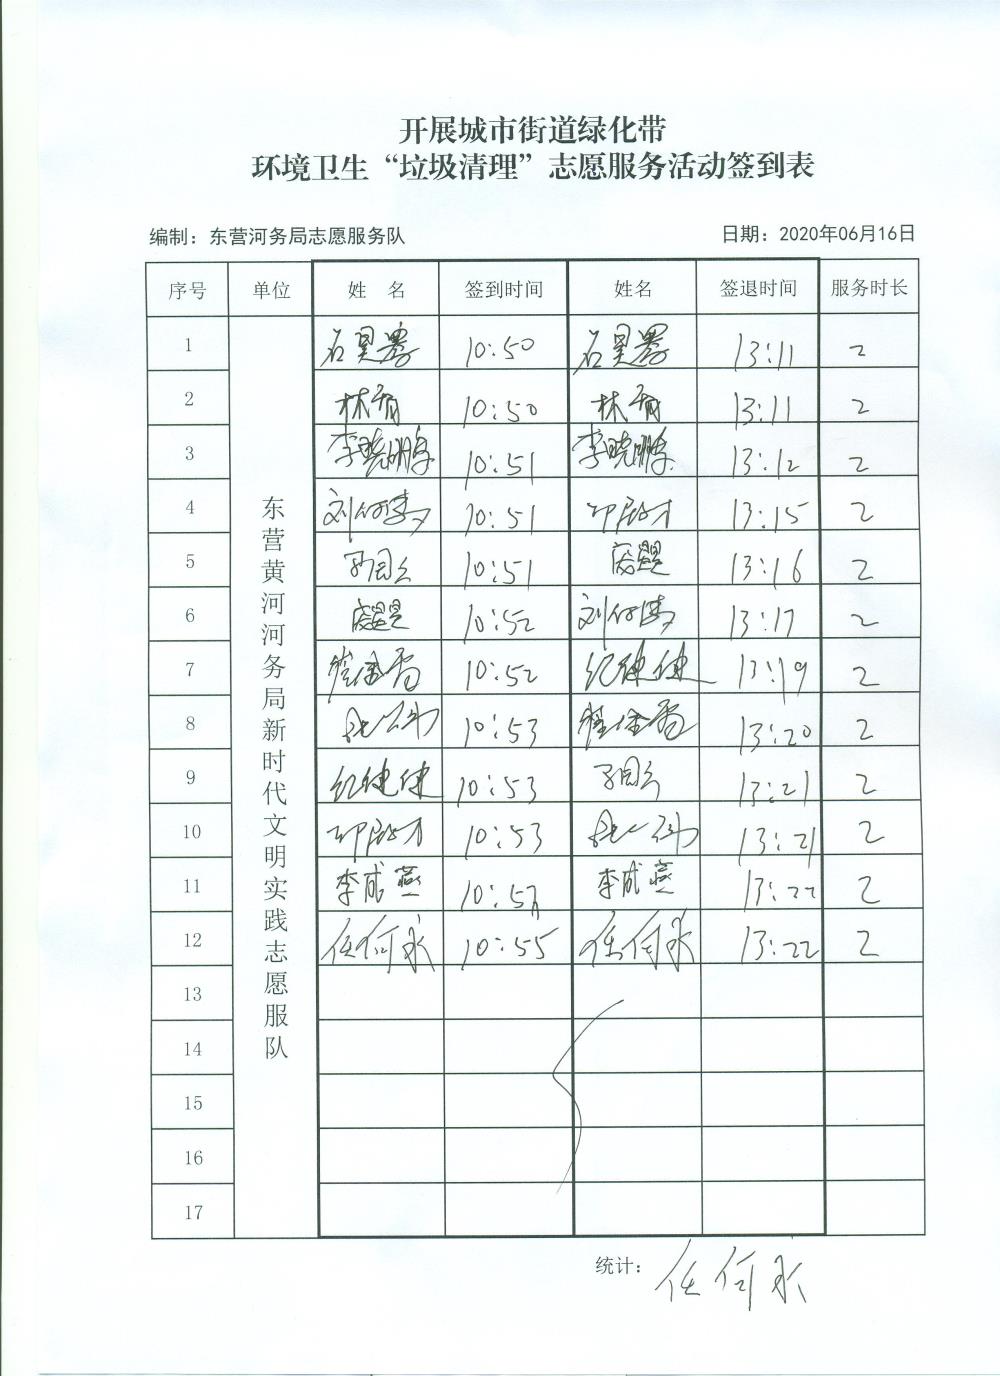 开展城市街道绿化带
环境卫生“垃圾清理”志愿服务活动签到表
编制：东营河务局志愿服务队 日期：2020年06月16日
序号 单位 姓 名 签到时间 姓名 签退时间 服务时长
东营黄河河务局新时代文明实践志愿服队
1 10:50 13:11 2
2 10:50 13:11 2
3 李晓鹏 10:51 李晓鹏 13:12 2
4 10:51 13:15 2
5 10:51 13:16 2
6 10:52 13:17 2
7 10:52 纪健健 13:19 2
8 10:53 13:20 2
9 纪健健 10:53 13:21 2
10 10:53 13:21 2
11 李成燕 李成燕 13:22 2
12 任何永 10:55 任何永 13:22 2
13
14
15
16
17
统计： 任何永